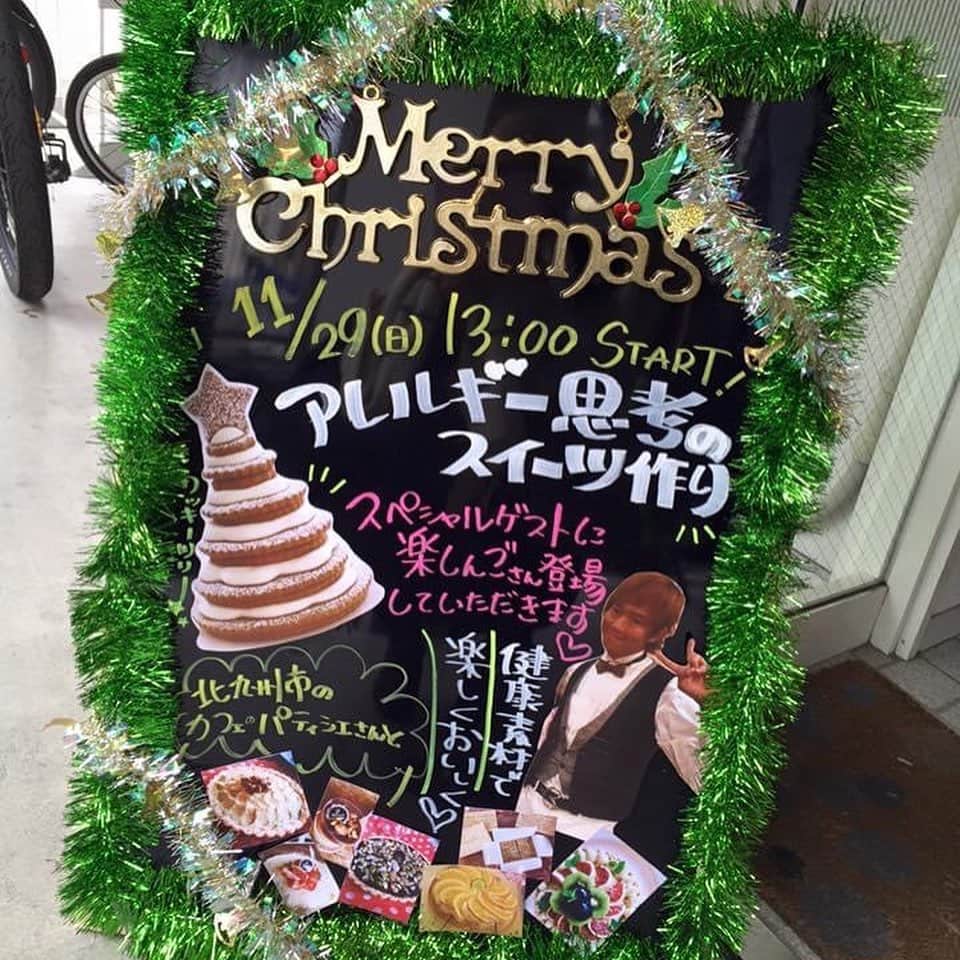 Merry
Christmas
11/29(日) 13:00 START!
アレルギー思考の
スイーツ作り
スペシャルゲストに
楽しんごさん登場
していただきます♡
クッキーツリー
健康素材で
楽しくおいしく♡
北九州市の
カフェのパティシエさんと